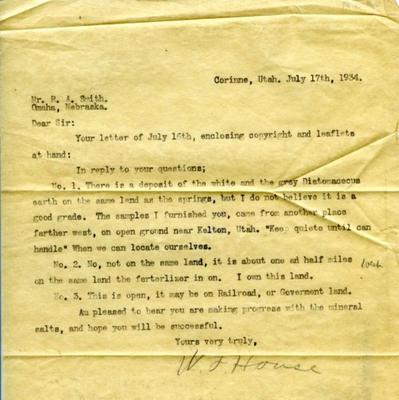 Corinne, Utah. July 17th, 1934.
Mr. R. A. Smith.
Omaha, Nebraska.
Dear Sir:
Your letter of July 16th, enclosing copyright and leaflets
at hand:
In reply to your questions;
No. 1. There is a deposit of the white and the grey Diatomaceous
earth on the same land as the springs, but I do not believe it is a
good grade. The samples I furnished you, came from another place
farther west, on open ground near Kelton, Utah. "Keep quiete until can
handle" When we can locate ourselves.
No. 2. No, not on the same land, it is about one an half miles
on the same land the ferterlizer in on. I own this land.
No. 3. This is open, it may be on Railroad, or Goverment land.
Am pleased to hear you are making progress with the mineral
salts, and hope you will be successful.
Yours very truly,
W J House